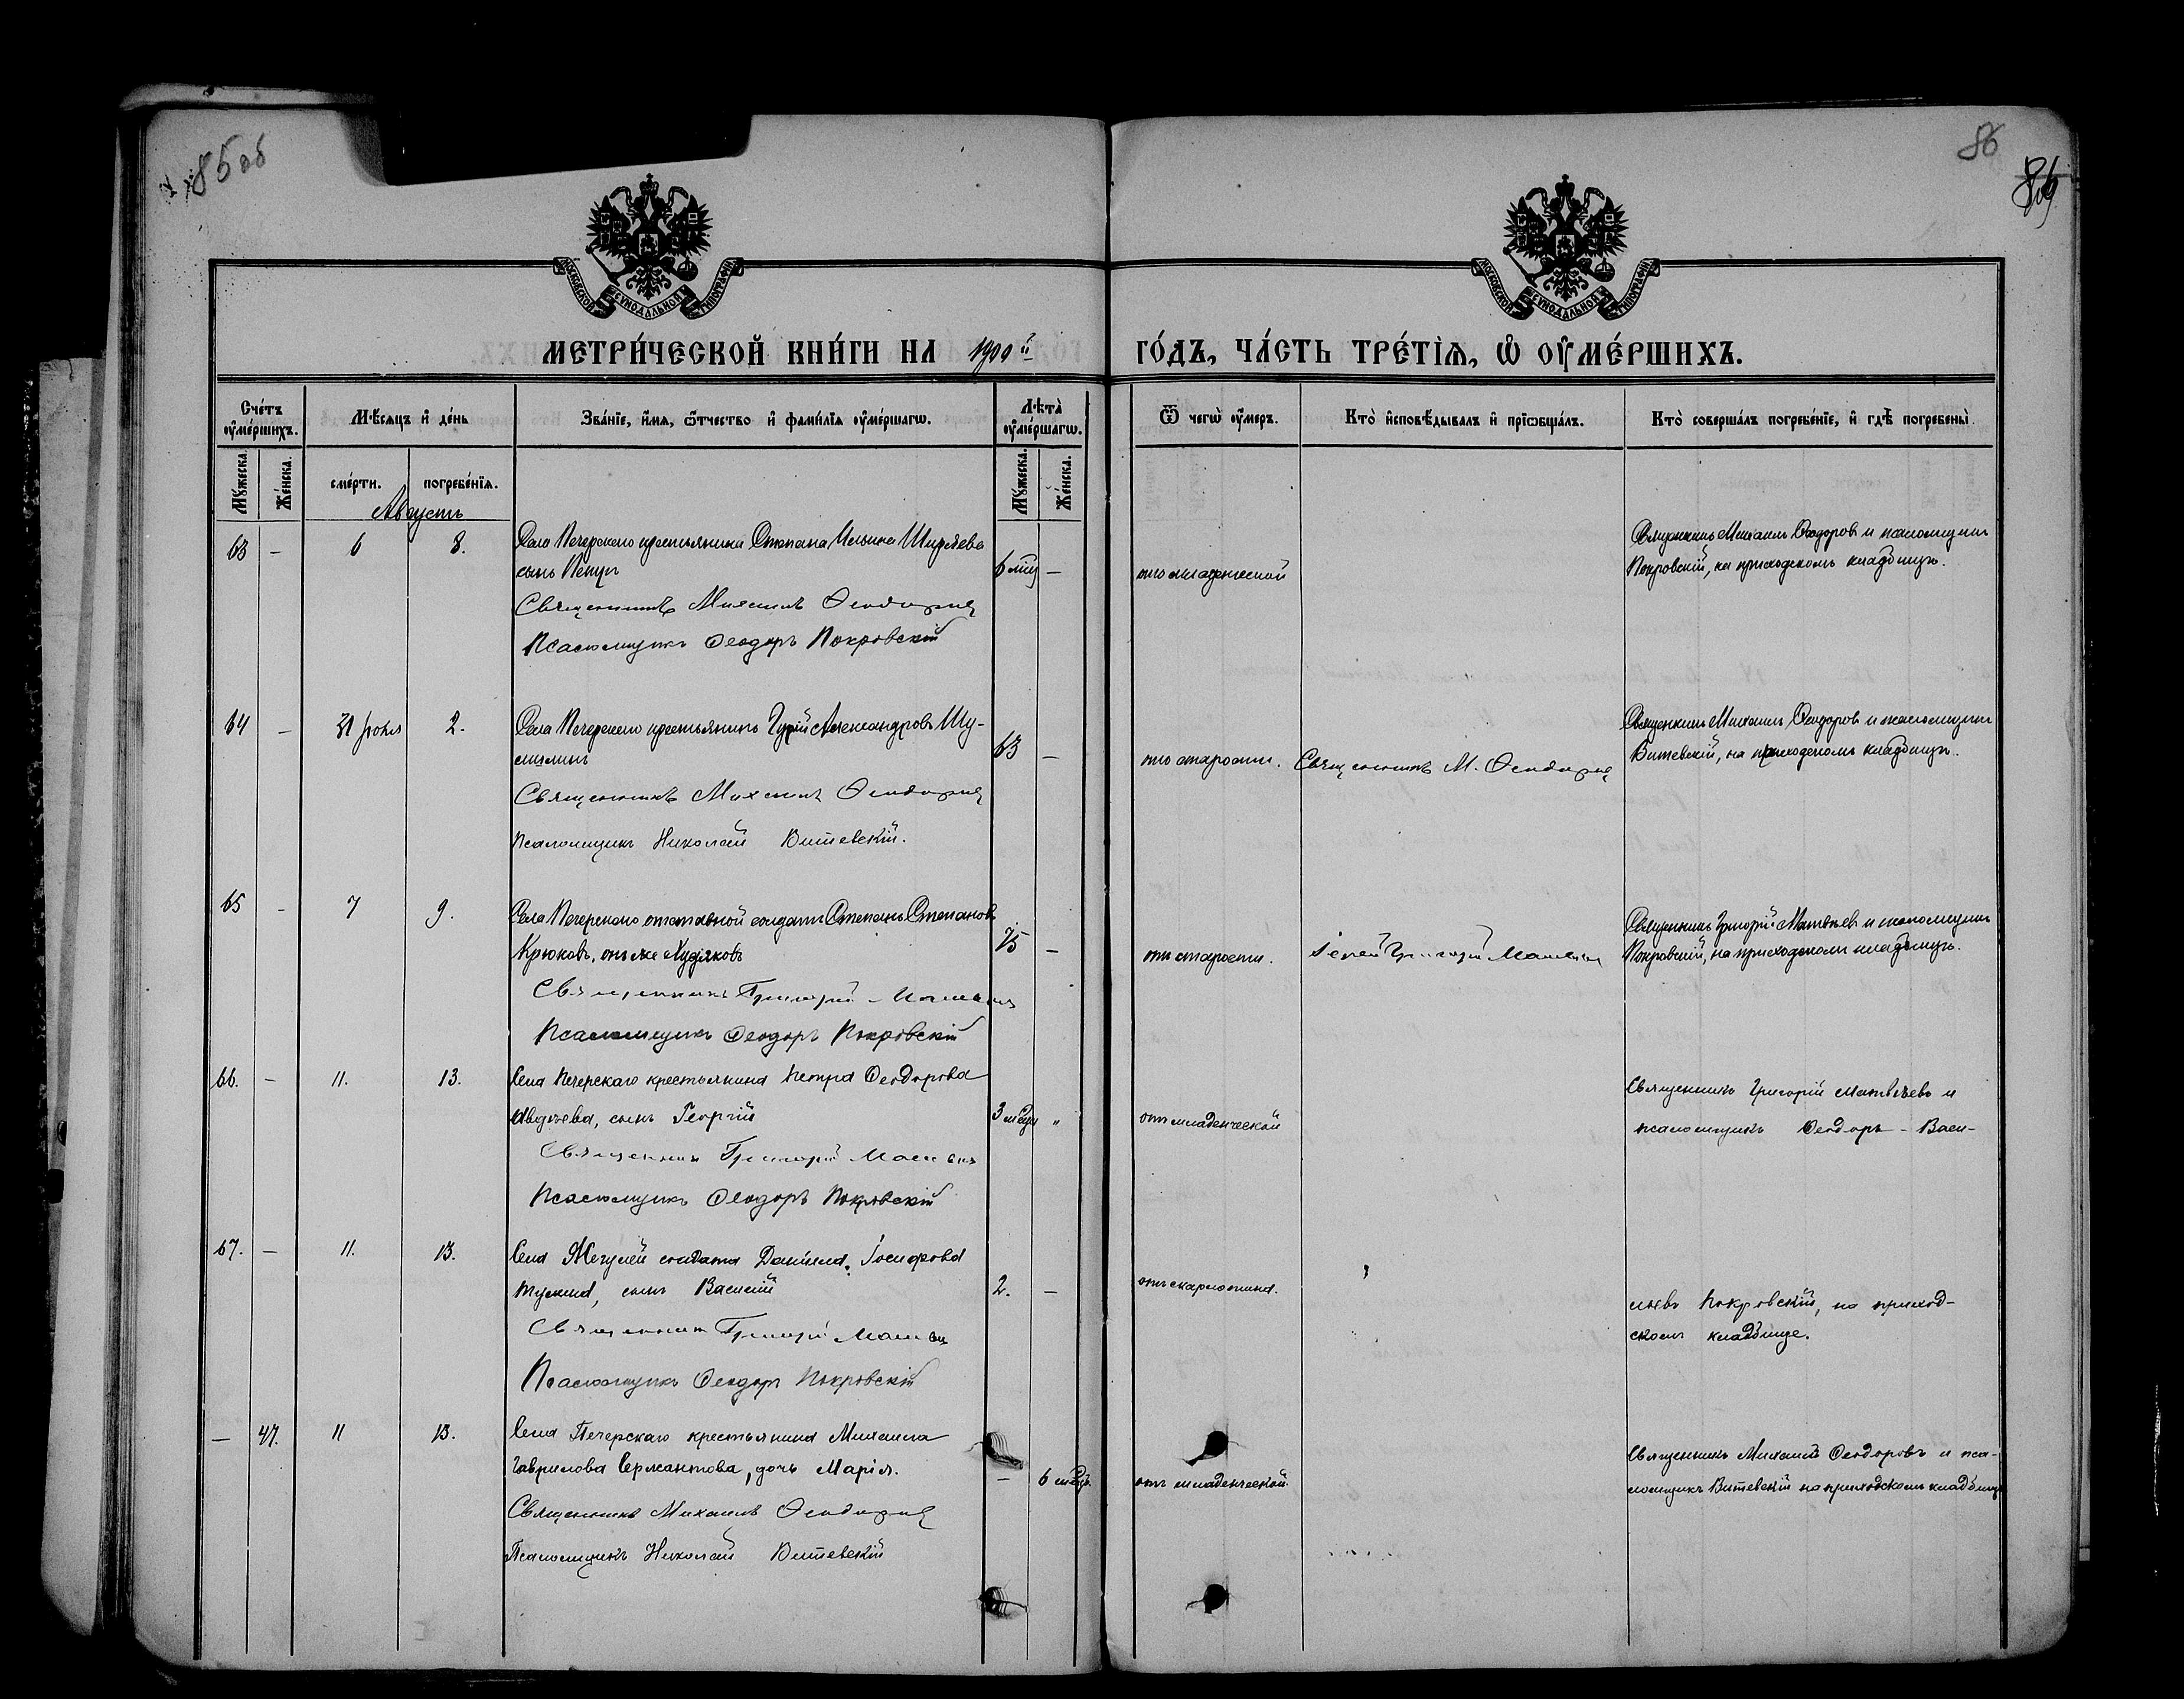 85 об
86
МОСКОВСКОЙ СѴНОДАЛЬНОЙ ТИПОГРАФІИ
МОСКОВСКОЙ СѴНОДАЛЬНОЙ ТИПОГРАФІИ
МЕТРИ́ЧЕСКОЙ КНИ́ГИ НА 1900й
ГО́ДЪ, ЧА́СТЬ ТРЕ́ТІѦ, Ѡ҆ ОУ҆МЕ́РШИХЪ.
Сче́тъ оу҆ме́ршихъ.
Мѣ́сяцъ и҆ де́нь
Зва́нїе, и҆́мя, ѻ҆́тчество и҆ фами́лїя оу҆ме́ршагѡ.
Лѣта̀ оу҆ме́ршагѡ.
Ѿ чегѡ̀ оу҆́меръ.
Кто̀ и҆сповѣ́дывалъ и҆ прїѡбща́лъ.
Кто̀ соверша́лъ погребе́нїе, и҆ гдѣ̀ погребены̀.
Мꙋ́жеска.
Же́нска.
сме́рти.
погребе́нїя.
Мꙋ́жеска.
Же́нска.
Августъ
63 — 6 8. Села Печерскаго крестьянина Степана Ильина Ширяева
сынъ Петръ 6 мцъ —
Священникъ Михаилъ Ѳеодоровъ
Псаломщикъ Ѳеодоръ Покровскій
отъ младенческой
Священникъ Михаилъ Ѳеодоровъ и псаломщикъ
Покровскій, на приходскомъ кладбищѣ.
64 — 31 іюля 2. Села Печерскаго крестьянинъ Гурій Александровъ Шу-
63 —
Священникъ Михаилъ Ѳеодоровъ
Псаломщикъ Николай Витевскій.
отъ старости. Священникъ М. Ѳеодоровъ
Священникъ Михаилъ Ѳеодоровъ и псаломщикъ
Витевскій, на приходскомъ кладбищѣ.
65 — 7 9. Села Печерскаго отставной солдатъ Степанъ Степановъ
Крюковъ, онъ же Худяковъ 75 —
Священникъ Григорій Матвѣевъ
Псаломщикъ Ѳеодоръ Покровскій
отъ старости. Іерей Григорій Матвѣевъ
Священникъ Григорій Матвѣевъ и псаломщикъ
Покровскій, на приходскомъ кладбищѣ.
66. — 11. 13. Села Печерскаго крестьянина Петра Ѳеодорова
Авдѣева, сынъ Георгій 3 мѣсц "
Священникъ Григорій Матвѣевъ
Псаломщикъ Ѳеодоръ Покровскій
отъ младенческой
Священникъ Григорій Матвѣевъ и
псаломщикъ Ѳеодоръ Васи-
67. — 11. 13. Села Жегулей солдата Даніила Іосифова
сынъ Василій 2. —
Священникъ Григорій Матвѣевъ
Псаломщикъ Ѳеодоръ Покровскій
отъ скарлатина.
льевъ Покровскій, на приход-
скомъ кладбище.
— 47. 11 13. Села Печерскаго крестьянина Михаила
Гаврилова Сержантова, дочь Марія. — 6 мѣсц.
Священникъ Михаилъ Ѳеодоровъ
Псаломщикъ Николай Витевскій
отъ младенческой.
Священникъ Михаилъ Ѳеодоровъ и пса-
ломщикъ Витевскій на приходскомъ кладбищѣ